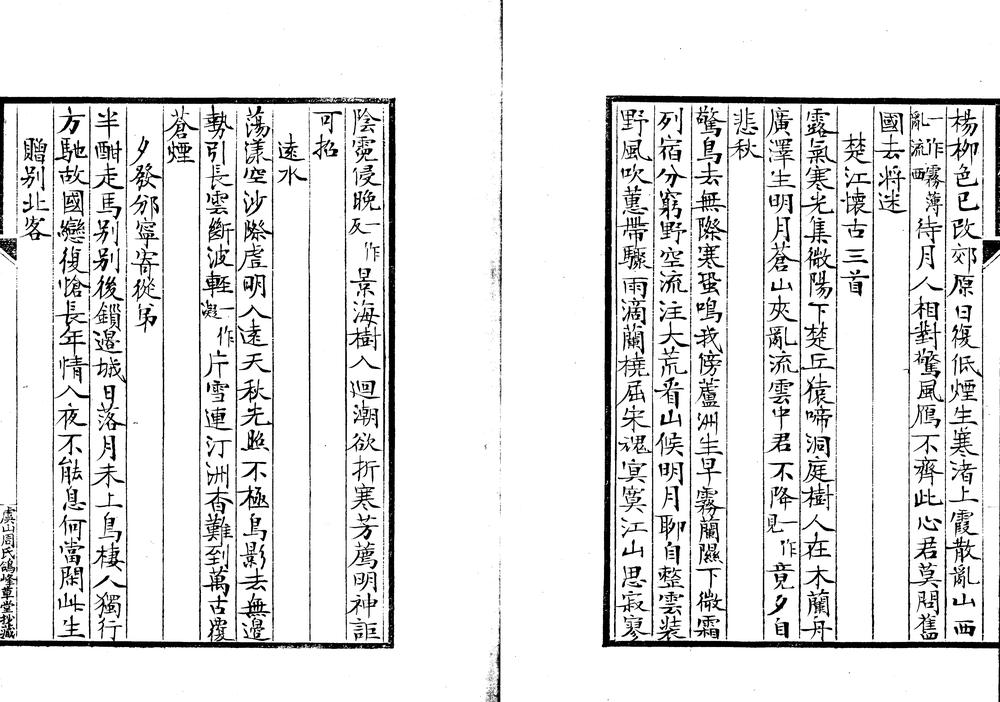 楊柳色已改郊原日復低煙生寒渚上霞散亂山西
一作霧薄亂流西待月人相對驚風鴈不齊此心君莫問舊
國去將迷
楚江懷古三首
露氣寒光集微陽下楚丘猿啼洞庭樹人在木蘭舟
廣澤生明月蒼山夾亂流雲中君不降一作見竟夕自
悲秋
驚鳥去無際寒蛩鳴我傍蘆洲生早霧蘭隰下微霜
列宿分窮野空流注大荒看山候明月聊自整雲裝
野風吹蕙帶驟雨滴蘭橈屈宋魂冥寞江山思寂寥
陰霓侵晚一作反景海樹入迴潮欲折寒芳薦明神詎
可招
遠水
蕩漾空沙際虛明入遠天秋光照不極鳥影去無邊
勢引長雲斷波輕一作澱片雪連汀洲杳難到萬古覆
蒼煙
夕發邠寧寄從弟
半酣走馬别别後鎖邉城日落月未上鳥棲人獨行
方馳故國戀復愴長年情入夜不能息何當閑此生
贈别北客
虞山周氏鴿峰草堂抄藏